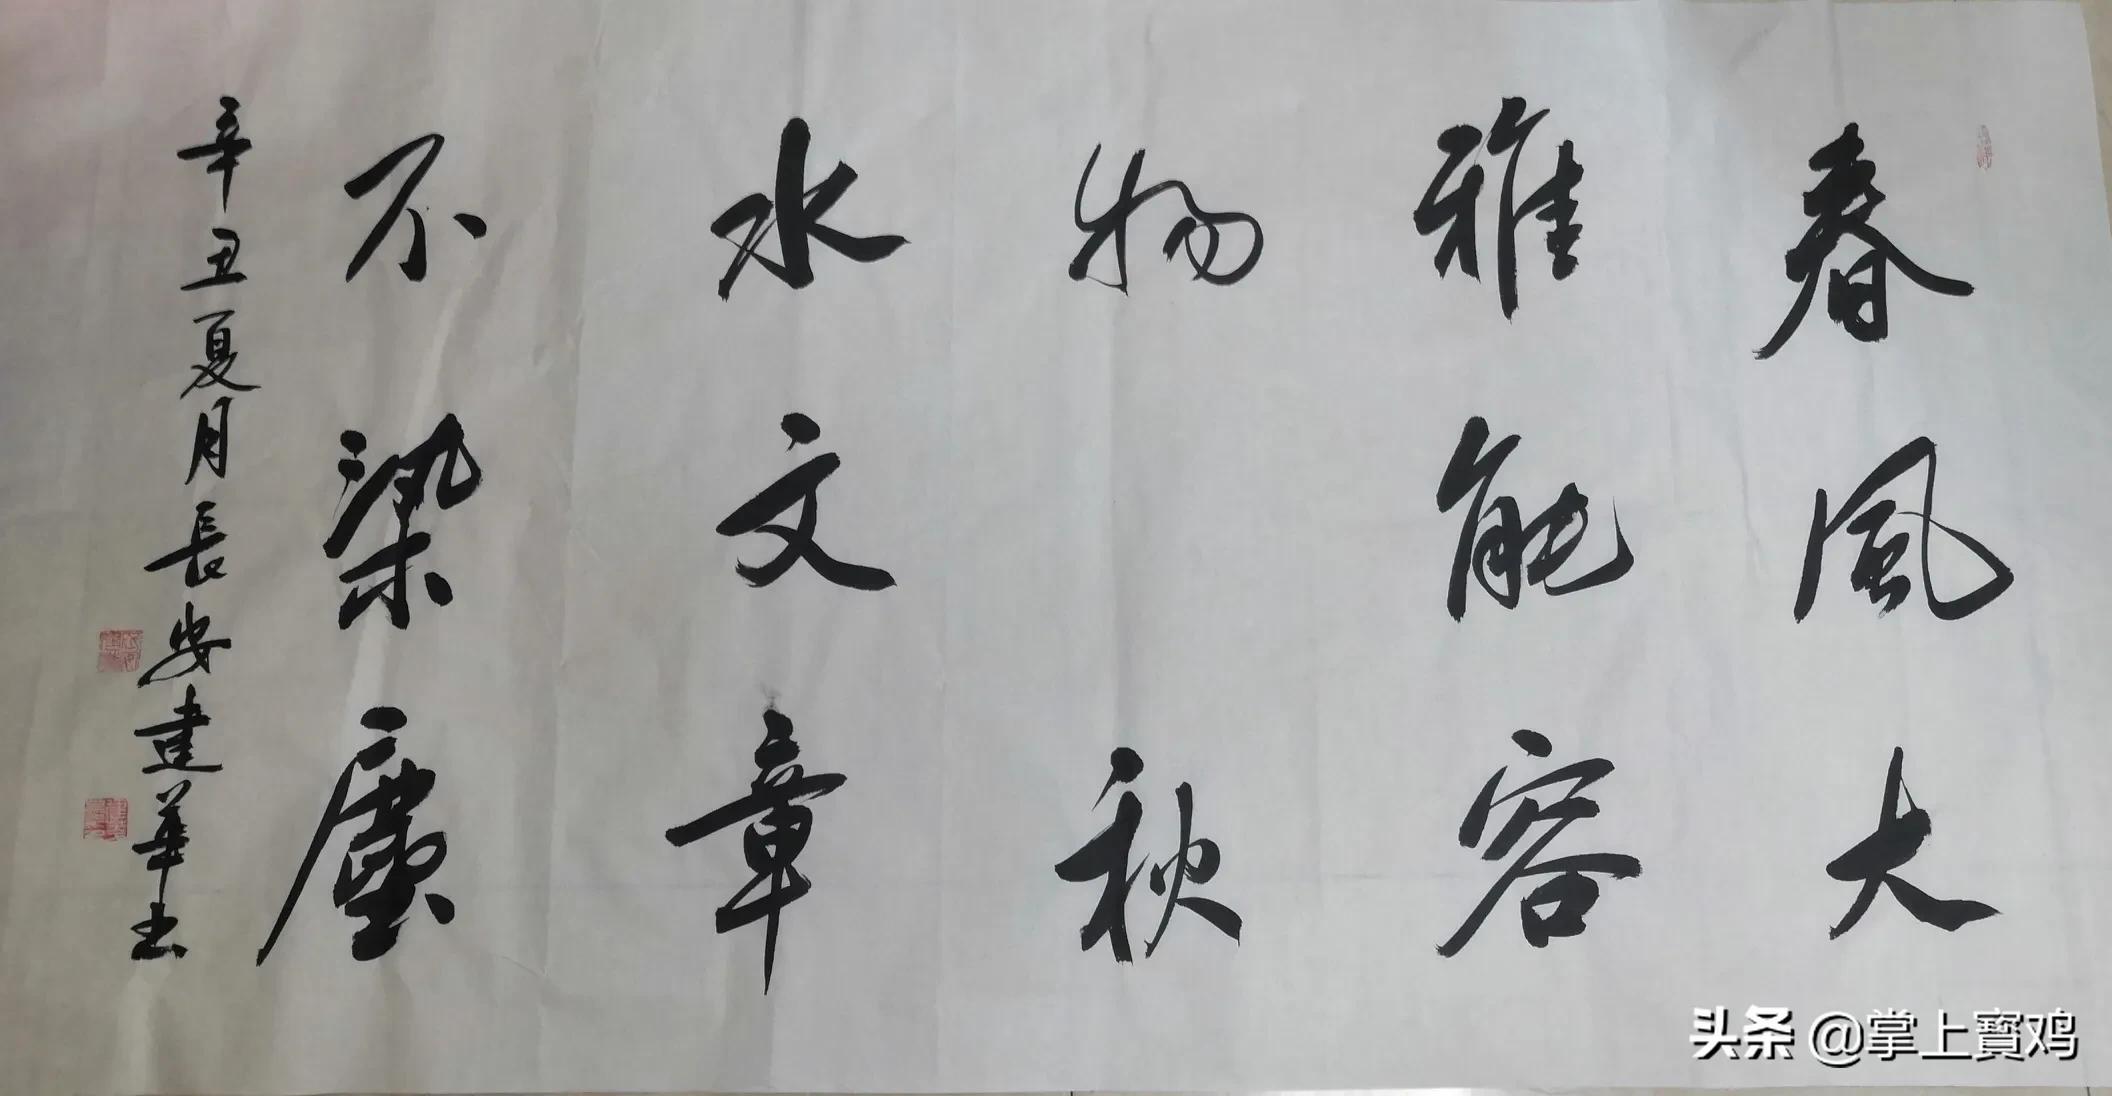 春風大
雅能容
物 秋
水文章
不染塵
辛丑夏月長安建華书
头条 @掌上寳鸡